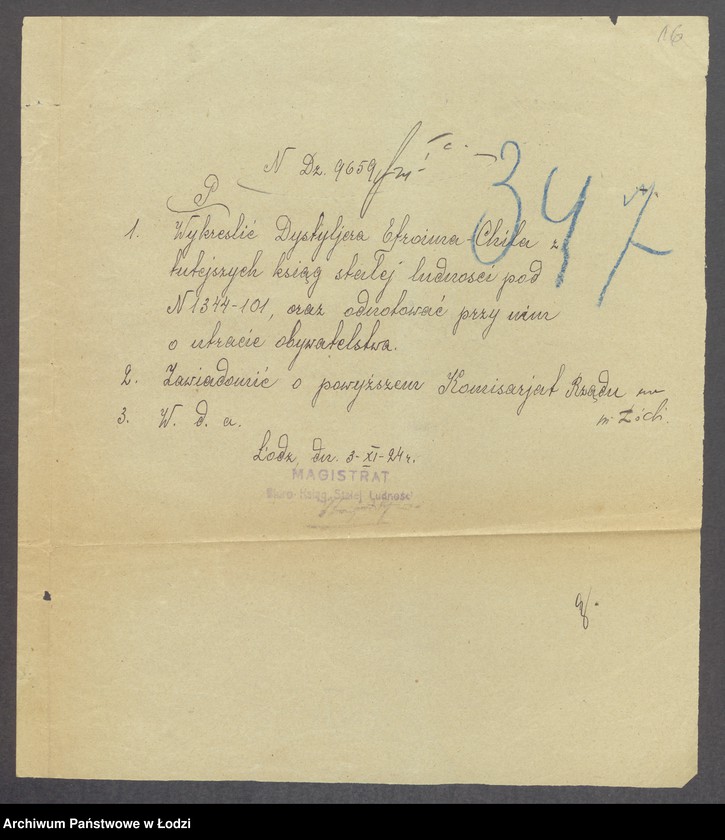 16
N Dz. 9659
347
P
1. Wykreslić Dystyljera Efroima Chila z
tutejszych ksiąg stałej ludnosci pod
N 1344-101, oraz odnotować przy nim
o utracie obywatelstwa.
2. Zawiadomić o powyższem Komisarjat Rządu na
m. Łódź.
3. W. d. a.
Łodz, dn. 3-XI-24 r.
MAGISTRAT
Biuro Ksiąg Stałej Ludności
Archiwum Państwowe w Łodzi